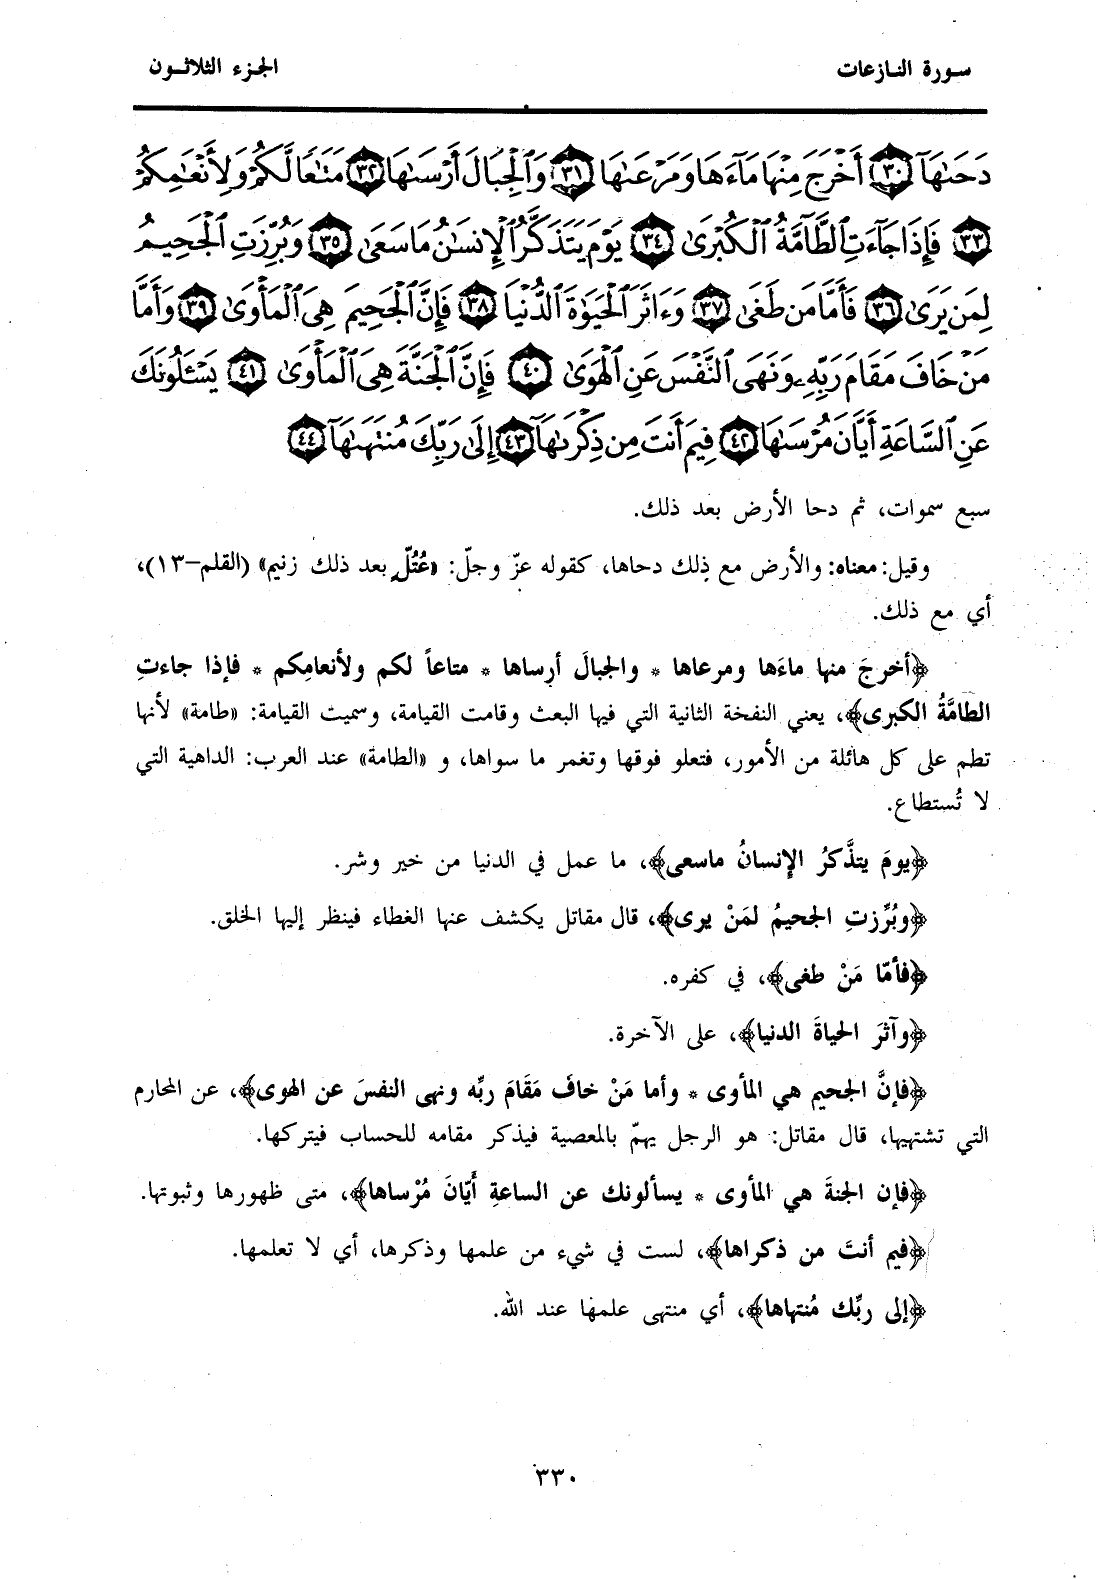 سورة النازعات
الجزء الثلاثون
دَحَىٰهَآ ٣٠ أَخْرَجَ مِنْهَا مَآءَهَا وَمَرْعَىٰهَا ٣١ وَٱلْجِبَالَ أَرْسَىٰهَا ٣٢ مَتَٰعًا لَّكُمْ وَلِأَنْعَٰمِكُمْ
٣٣ فَإِذَا جَآءَتِ ٱلطَّآمَّةُ ٱلْكُبْرَىٰ ٣٤ يَوْمَ يَتَذَكَّرُ ٱلْإِنسَٰنُ مَا سَعَىٰ ٣٥ وَبُرِّزَتِ ٱلْجَحِيمُ
لِمَن يَرَىٰ ٣٦ فَأَمَّا مَن طَغَىٰ ٣٧ وَءَاثَرَ ٱلْحَيَوٰةَ ٱلدُّنْيَا ٣٨ فَإِنَّ ٱلْجَحِيمَ هِىَ ٱلْمَأْوَىٰ ٣٩ وَأَمَّا
مَنْ خَافَ مَقَامَ رَبِّهِۦ وَنَهَى ٱلنَّفْسَ عَنِ ٱلْهَوَىٰ ٤٠ فَإِنَّ ٱلْجَنَّةَ هِىَ ٱلْمَأْوَىٰ ٤١ يَسْـَٔلُونَكَ
عَنِ ٱلسَّاعَةِ أَيَّانَ مُرْسَىٰهَا ٤٢ فِيمَ أَنتَ مِن ذِكْرَىٰهَآ ٤٣ إِلَىٰ رَبِّكَ مُنتَهَىٰهَآ ٤٤
سبع سموات، ثم دحا الأرض بعد ذلك.
وقيل: معناه: والأرض مع ذلك دحاها، كقوله عزّ وجلّ: «عُتُلّ بعد ذلك زنيم» (القلم-١٣)،
أي مع ذلك.
﴿أخرجَ منها ماءَها ومرعاها * والجبالَ أرساها * متاعاً لكم ولأنعامِكم * فإذا جاءتِ
الطامَّةُ الكبرى﴾، يعني النفخة الثانية التي فيها البعث وقامت القيامة، وسميت القيامة: «طامة» لأنها
تطم على كل هائلة من الأمور، فتعلو فوقها وتغمر ما سواها، و «الطامة» عند العرب: الداهية التي
لا تُستطاع.
﴿يومَ يتذَّكرُ الإنسانُ ماسعى﴾، ما عمل في الدنيا من خير وشر.
﴿وبُرِّزتِ الجحيمُ لمَنْ يرى﴾، قال مقاتل يكشف عنها الغطاء فينظر إليها الخلق.
﴿فأمّا مَنْ طغى﴾، في كفره.
﴿وآثرَ الحياةَ الدنيا﴾، على الآخرة.
﴿فإنَّ الجحيم هي المأوى * وأما مَنْ خافَ مَقَامَ ربِّه ونهى النفسَ عن الهوى﴾، عن المحارم
التي تشتهيها، قال مقاتل: هو الرجل يهمّ بالمعصية فيذكر مقامه للحساب فيتركها.
﴿فإن الجنةَ هي المأوى * يسألونك عن الساعةِ أيّانَ مُرْساها﴾، متى ظهورها وثبوتها.
﴿فيم أنتَ من ذكراها﴾، لست في شيء من علمها وذكرها، أي لا تعلمها.
﴿إلى ربِّك مُنتهاها﴾، أي منتهى علمها عند الله.
٣٣٠